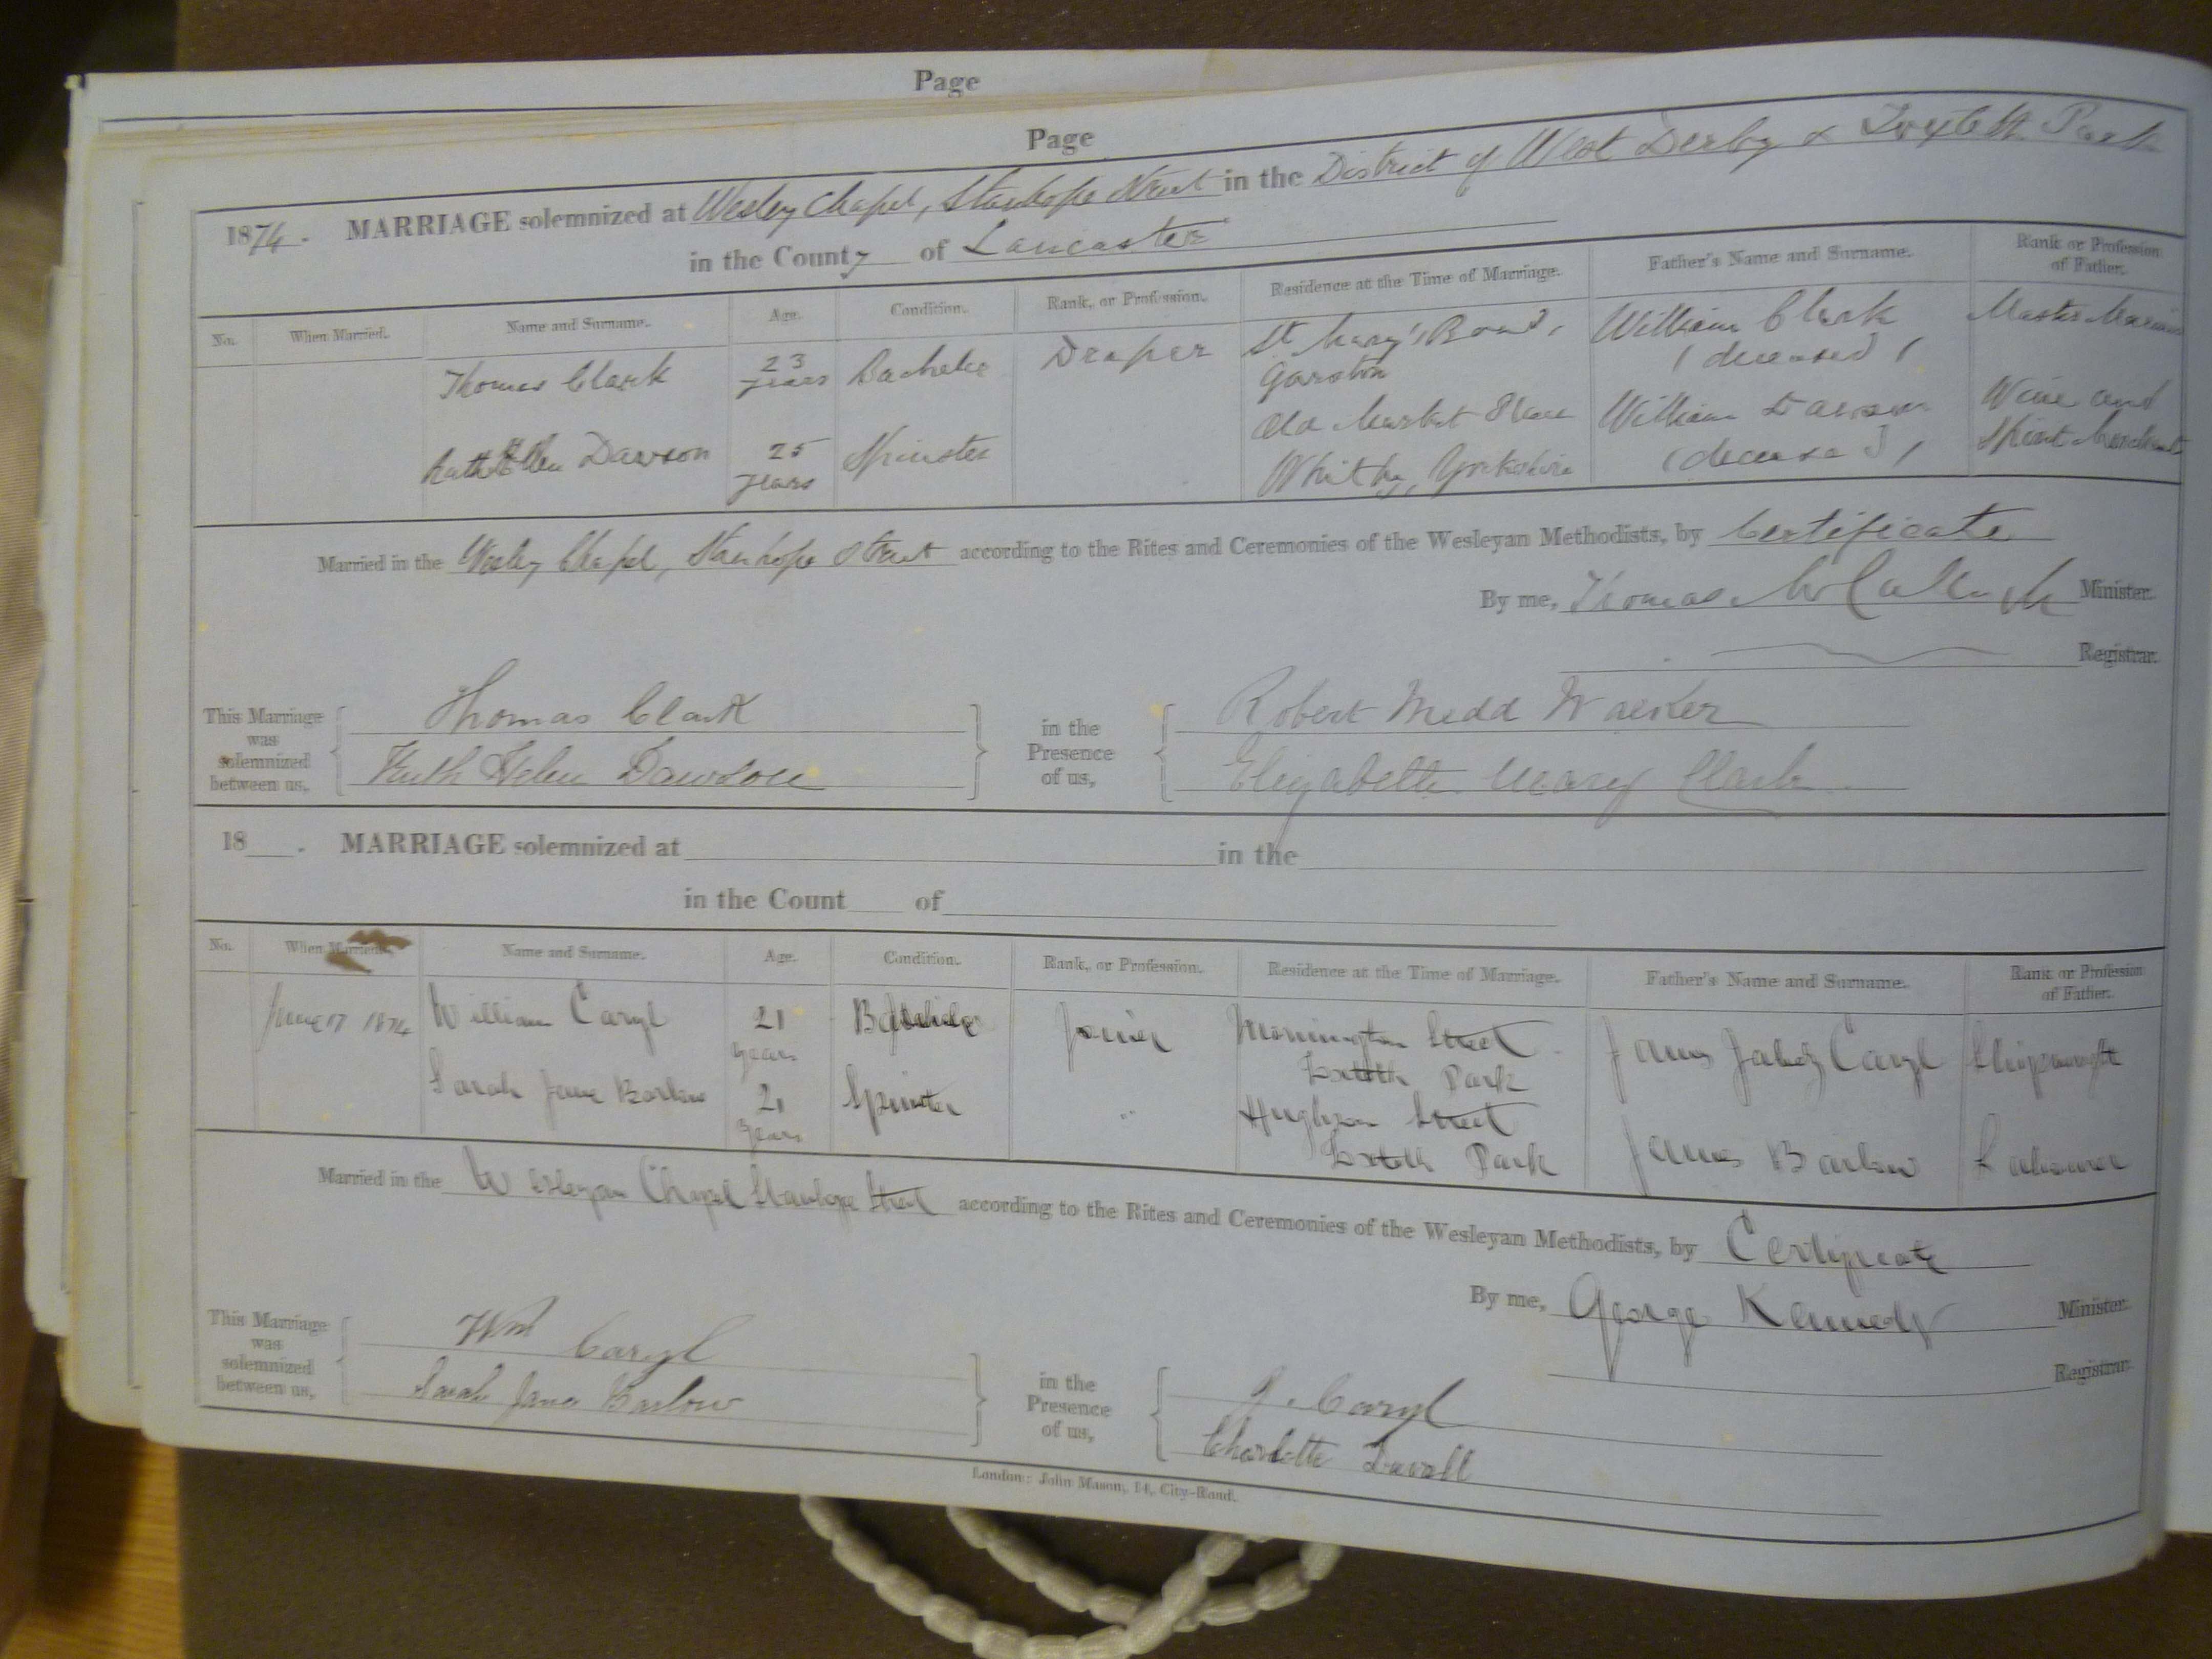 Page
Page
1874. MARRIAGE solemnized at Wesley Chapel, Stanhope Street in the District of West Derby & Toxteth Park
in the County of Lancaster
No. When Married. Name and Surname. Age. Condition. Rank, or Profession. Residence at the Time of Marriage. Father's Name and Surname. Rank or Profession of Father.
Thomas Clark 23 years Bachelor Draper St Mary's Road, Garston William Clark (deceased) Master Mariner
Ruth Helen Dawson 25 years Spinster Old Market Place Whitby, Yorkshire William Dawson (deceased) Wine and Spirit Merchant
Married in the Wesley Chapel, Stanhope Street according to the Rites and Ceremonies of the Wesleyan Methodists, by Certificate
By me, Thomas McCullagh Minister.
Registrar.
This Marriage was solemnized between us, Thomas Clark
Ruth Helen Dawson
in the Presence of us, Robert Medd Walker
Elizabeth Mary Clark
18 . MARRIAGE solemnized at in the
in the Count of
No. When Married. Name and Surname. Age. Condition. Rank, or Profession. Residence at the Time of Marriage. Father's Name and Surname. Rank or Profession of Father.
June 17 1874 William Caryl 21 years Bachelor Joiner Mornington Street Toxteth Park James Jabez Caryl Shipwright
Sarah Jane Barlow 21 years Spinster " Hughson Street Toxteth Park James Barlow Labourer
Married in the Wesleyan Chapel Stanhope Street according to the Rites and Ceremonies of the Wesleyan Methodists, by Certificate
By me, George Kennedy Minister.
Registrar.
This Marriage was solemnized between us, Wm Caryl
Sarah Jane Barlow
in the Presence of us, J. Caryl
Charlotte Duvall
London: John Mason, 14, City-Road.